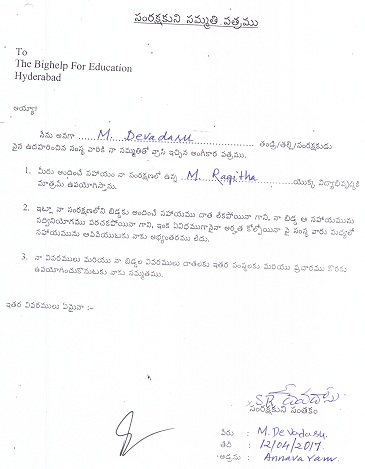 సంరక్షకుని సమ్మతి పత్రము
To
The Bighelp For Education
Hyderabad
అయ్యా!
నేను అనగా M. Devadasu తండ్రి/తల్లి/సంరక్షకుడు
పైన ఉదహరించిన సంస్థ వారికి నా సమ్మతితో వ్రాసి ఇచ్చిన అంగీకార పత్రము.
1. మీరు అందించే సహాయం నా సంరక్షణలో ఉన్న M. Ragitha యొక్క విద్యాభివృద్ధికి
మాత్రమే ఉపయోగిస్తాను.
2. ఇట్లా నా సంరక్షణలోని బిడ్డకు అందించే సహాయము దాత లేకపోయినా గాని, నా బిడ్డ ఆ సహాయమును
సద్వినియోగము పరచకపోయినా గాని, ఇంక ఏవిధముగానైనా అర్హత కోల్పోయినా పై సంస్థ వారు మధ్యలో
సహాయమును ఆపివేయుటకు నాకు అభ్యంతరము లేదు.
3. నా వివరములు మరియు నా బిడ్డల వివరములు దాతలకు ఇతర సంస్థలకు మరియు ప్రచారము కొరకు
ఉపయోగించుకొనుటకు నాకు సమ్మతము.
ఇతర వివరములు ఏమైనా :-
దేవదాసు
సంరక్షకుని సంతకం
పేరు : M. Devadasu
తేది : 12/04/2017
అడ్రసు : Annavaram